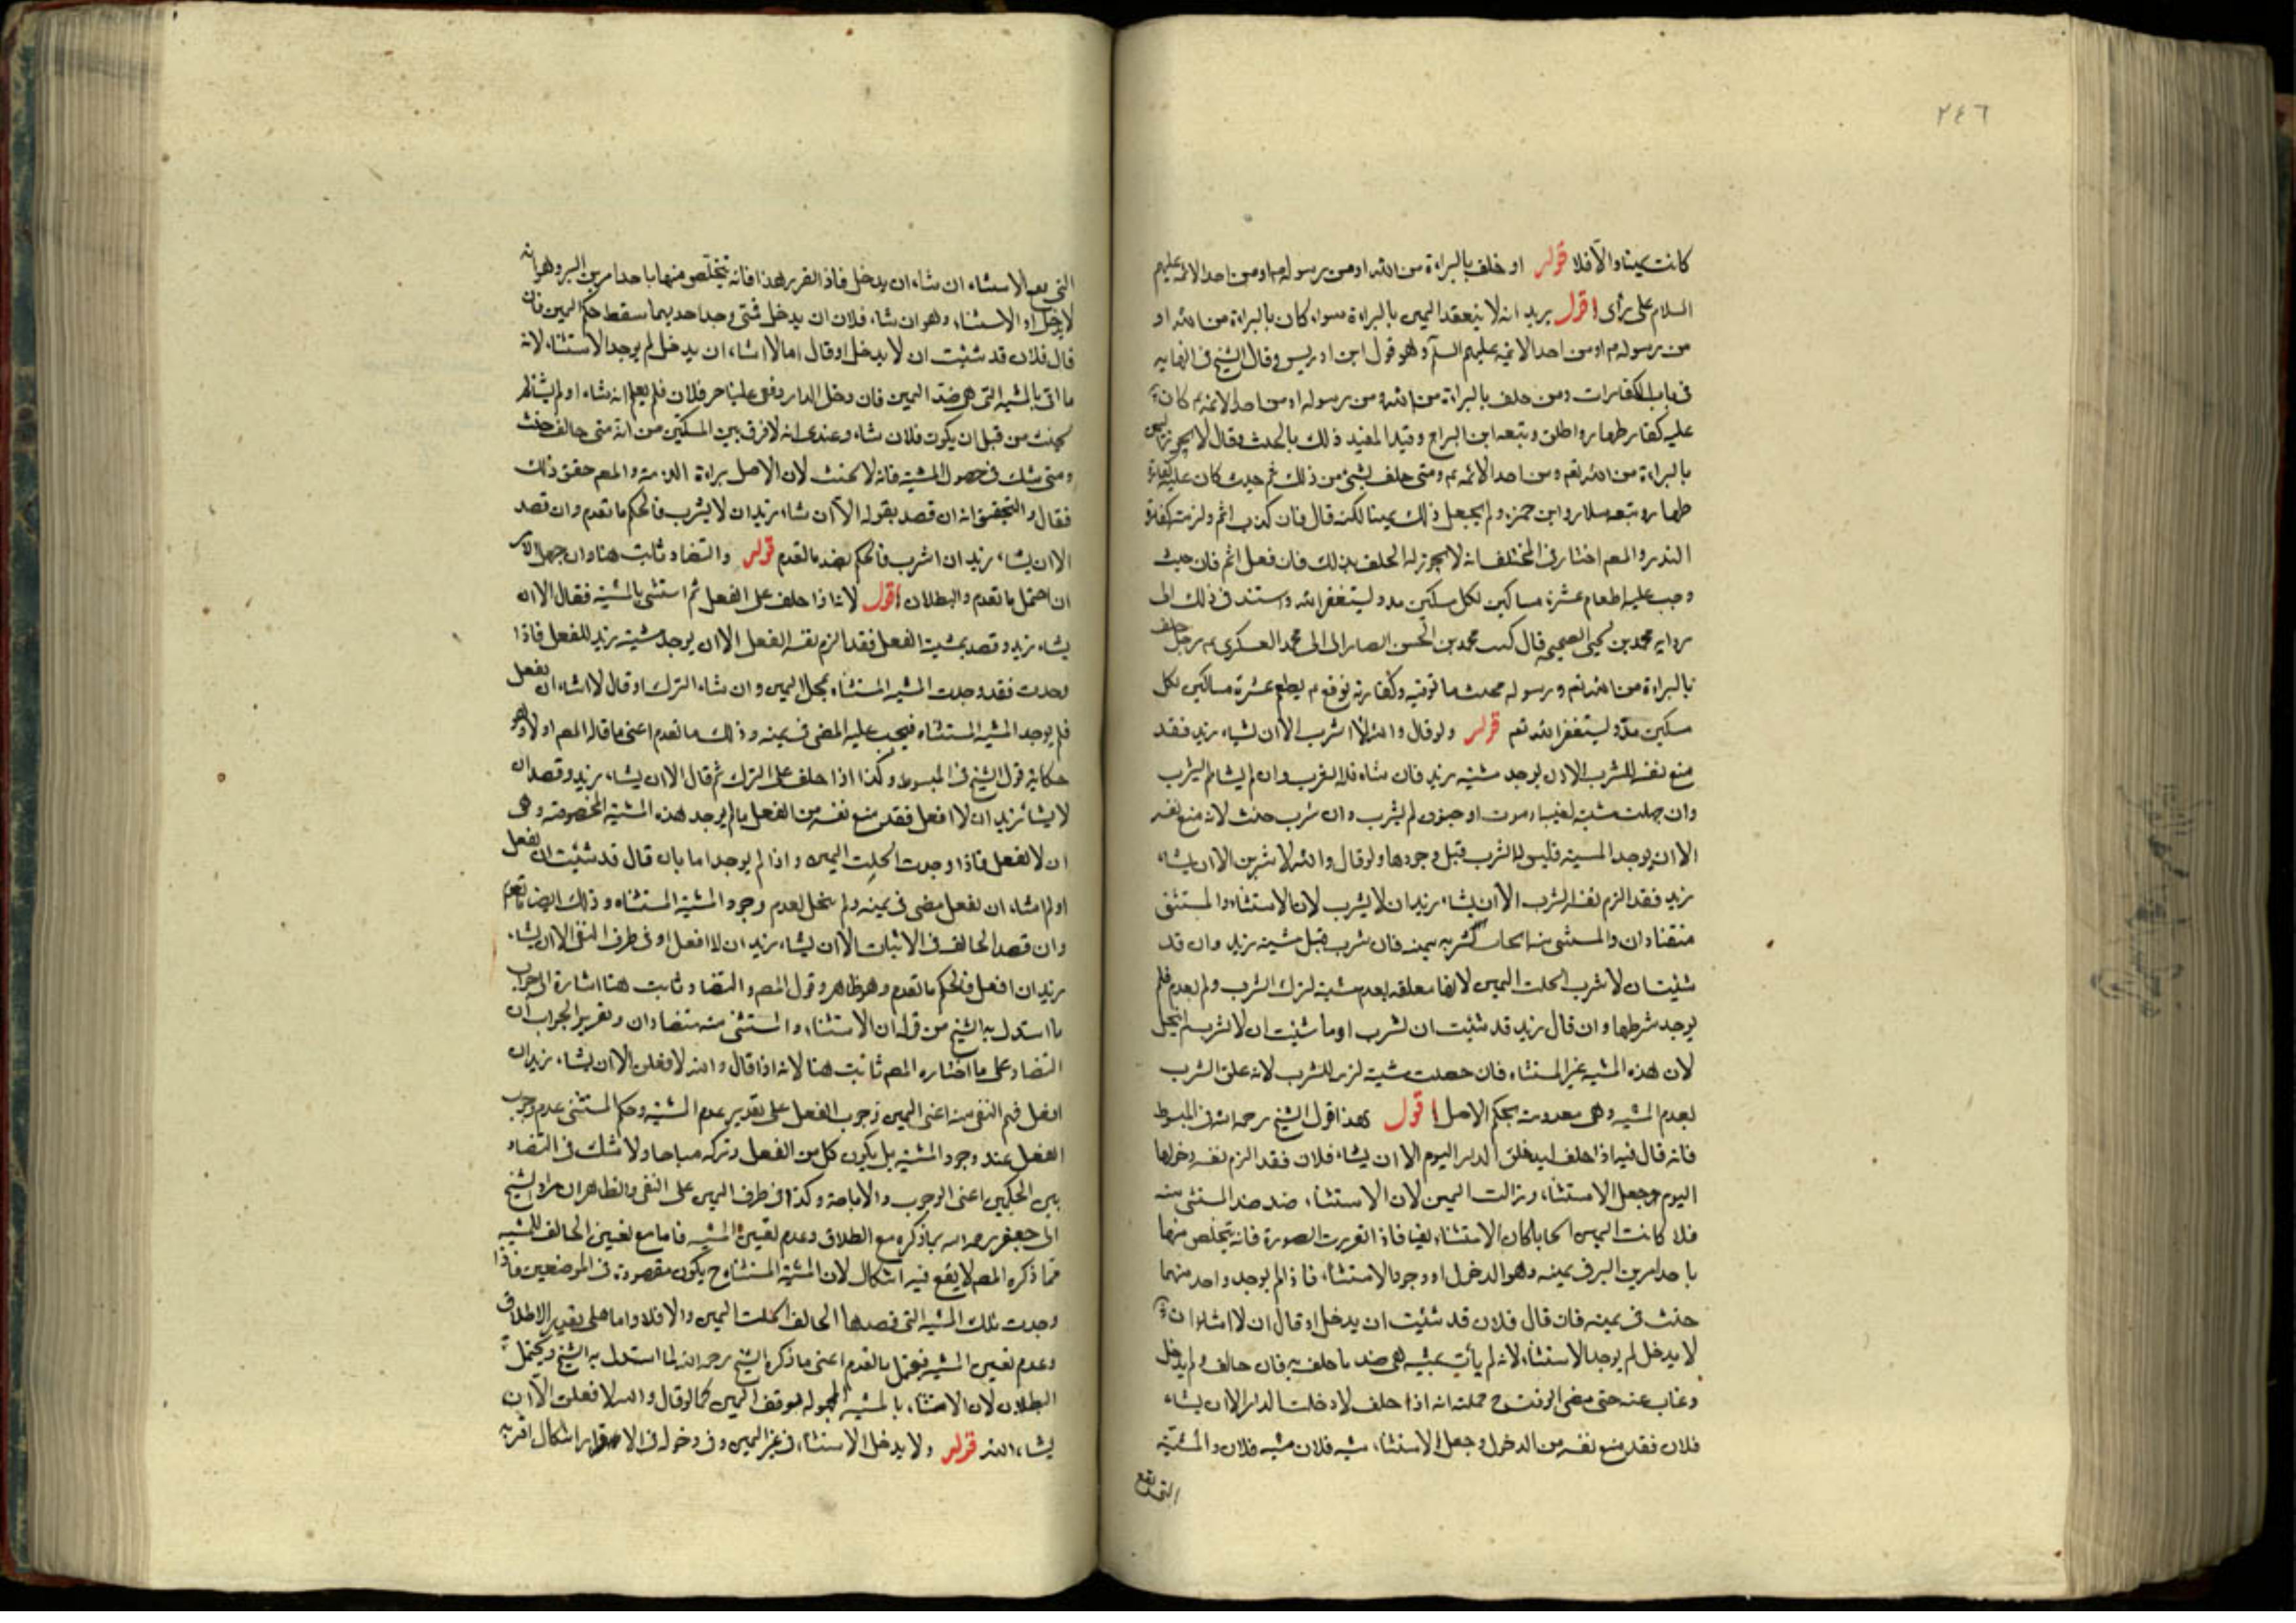 ٢٤٦
كانت يمينا والا فلا قوله او حلف بالبراءة من الله او من رسوله م او من احد الائمه عليهم
السلام على رأى اقول يريد انه لا ينعقد اليمين بالبراءة سواء كان بالبراءة من الله او
من رسوله م او من احد الائمه عليهم السلم وهو قول ابن ادريس وقال الشيخ فى النهايه
فى باب الكفارات ومن حلف بالبراءة من الله ومن رسوله او من احد الائمه م كان
عليه كفارة ظهار واطلق وتبعه ابن البراج وقيد المفيد ذلك بالحنث وقال لا يجوز اليمين
بالبراءة من الله تعم ومن احد الائمه م ومتى حلف بشئ من ذلك ثم حنث كان عليه كفارة
ظهار وتبعه سلار وابن حمزه ولم يجعل ذلك يمينا لكنه قال فان كذب اثم ولزمته كفارة
النذر والمصم اختار فى المختلف انه لا يجوز له الحلف بذلك فان فعل اثم فان حنث
وجب عليه اطعام عشرة مساكين لكل مسكين مد وليستغفر الله واستند فى ذلك الى
روايه محمد بن يحيى الصحيحه قال كتب محمد بن الحسن الصفار الى ابى محمد العسكرى م رجل حلف
بالبراءة من الله تعم ورسوله فحنث ما توبته وكفارته فوقع م يطعم عشرة مساكين لكل
مسكين مد وليستغفر الله تعم قوله ولو قال والله لا اشرب الا ان يشاء زيد فقد
منع نفسه الشرب الا ان يوجد مشيته زيد فان شاء فله الشرب وان لم يشا لم يشرب
وان جهلت مشيته لغيبه او موت او جنون لم يشرب وان شرب حنث لانه منع نفسه
الا ان يوجد المشيه فليس له الشرب قبل وجودها ولو قال والله لاشربن الا ان يشاء
زيد فقد الزم نفسه الشرب الا ان يشاء زيد ان لا يشرب لان الاستثناء والمستثنى
متضادان والمستثنى منه ايجاب لشربه بيمينه فان شرب قبل مشيته زيد وان قد
شئت ان لا تشرب انحلت اليمين لانها معلقه بعدم مشيته لترك الشرب ولم تعدم فلم
يوجد شرطها وان قال زيد قد شئت ان تشرب او ما شئت ان لا تشرب لم ينحل
لان هذه المشيه غير المستثناه فان خفيت مشيته لزمه الشرب لانه علق الشرب
بعدم المشيه وهى معدومه بحكم الاصل اقول هذا قول الشيخ رحمه الله فى المبسوط
فانه قال فيه اذا حلف ليدخلن الدار اليوم الا ان يشاء فلان فقد الزم نفسه دخولها
اليوم وجعل الاستثناء وزالت اليمين لان الاستثناء ضده ضد المستثنى منه
فلما كانت اليمين ايجابا كان الاستثناء نفيا فاذا تقررت الصورة فانه يتخلص منها
باحد امرين البر فى يمينه وهو الدخول او وجود الاستثناء فاذا لم يوجد واحد منهما
حنث فى يمينه فان قال فلان قد شئت ان يدخل او قال ان لا اشاء ان
لا يدخل لم يوجد الاستثناء لانه لم يأت بمشيه هى ضد ما حلف به فان حالف ولم يدخل
وغاب عنه حتى مضى الوقت ثم حملته انه اذا حلف لا دخلت الدار الا ان يشاء
فلان فقد منع نفسه من الدخول وجعل الاستثناء مشيه فلان مشيه فلان والمشيه
التى يقع
التى يقع الاستثناء ان شاء ان يدخل فاذا تقرر هذا فانه يتخلص منها باحد امرين البر وهو انه
لا يدخل او الاستثناء وهو ان شاء فلان ان يدخل فمتى وجد احديهما سقط حكم اليمين فان
قال فلان قد شئت ان لا يدخل او قال اما لا اشاء ان يدخل لم يوجد الاستثناء لانه
ما اتى بالمشيه التى هى ضد اليمين فان دخل الدار وخفى علينا خبر فلان فلم يعلم انه شاء او لم يشأ لم
يحنث من قبل ان يكون فلان شاء وعندى انه لا فرق بين المسئلتين من انه متى حالف حنث
ومتى شك فى حصول المشيه فانه لا يحنث لان الاصل براءة الذمه والمصم حقق ذلك
فقال والتحقيق انه ان قصد بقوله الا ان يشاء زيد ان لا يشرب فالحكم ما تقدم وان قصد
الا ان يشاء زيد ان اشرب فالحكم بضد ما تقدم قوله والتضاد ثابت هنا وان جهل الامر
ان احتمل ما تقدم والبطلان اقول لانه اذا حلف على الفعل ثم استثنى بالمشيه فقال الا ان
يشاء زيد وقصد بمشيته الفعل فقد الزم نفسه الفعل الا ان يوجد مشيته زيد للفعل فاذا
وجدت فقد وجدت المشيه المستثناه فيحل اليمين وان شاء الترك او قال لا اشاء ان يفعل
فلم يوجد المشيه المستثناه فيجب عليه المضى فى يمينه وذلك ما تقدم اعنى ما قاله المصم اولا وهو
حكاية قول الشيخ فى المبسوط وكذا اذا حلف على الترك ثم قال الا ان يشاء زيد وقصد ان
لا يشا زيد ان لا افعل فقد منع نفسه من الفعل ما لم يوجد هذه المشيه المخصوصه وهى
ان لا يفعل فاذا وجدت انحلت اليمين واذا لم يوجد اما بان قال قد شئت ان يفعل
او لم اشاء ان يفعل مضى فى يمينه ولم ينحل لعدم وجود المشيه المستثناه وذلك ايضا ما تقدم
وان قصد الحالف فى الاثبات الا ان يشاء زيد ان لا افعل او فى طرف النفى الا ان يشاء
زيد ان افعل فالحكم ما تقدم وهو ظاهر وقول المصم والتضاد ثابت هنا اشارة الى جواب
ما استدل به الشيخ من قوله ان الاستثناء والمستثنى منه متضادان وتقرير الجواب ان
التضاد على ما اختاره المصم ثابت هنا لانه اذا قال والله لافعلن الا ان يشاء زيد ان
افعل فهم النفى منه اعنى اليمين وجوب الفعل على تقدير عدم المشيه وحكم المستثنى عدم وجوب
الفعل عند وجود المشيه بل يكون كل من الفعل وتركه مباحا ولا شك فى التضاد
بين الحكمين اعنى الوجوب والاباحة وكذا فى طرف اليمين على النفى والظاهر ان مراد الشيخ
ابى جعفر رحمه الله بما ذكره مع الطلاق وعدم تعيين المشيه فاما مع تعيين الحالف للمشيه
فما ذكره المصم لا يقع فيه اشكال لان المشيه المستثناه ح يكون مقصودة فى الموضعين فاذا
وجدت تلك المشيه التى قصدها الحالف انحلت اليمين والا فلا واما على تقدير الاطلاق
وعدم تعيين المشيه فيحتمل ما تقدم اعنى ما ذكره الشيخ رحمه الله لما استدل به الشيخ ويحتمل
البطلان لان الاستثناء بالمشيه المجهوله يوقف اليمين كما لو قال والله لا فعلت الا ان
يشاء الله قوله ولا يدخل الاستثناء فى غير اليمين وفى دخوله فى الاقرار اشكال اقربه